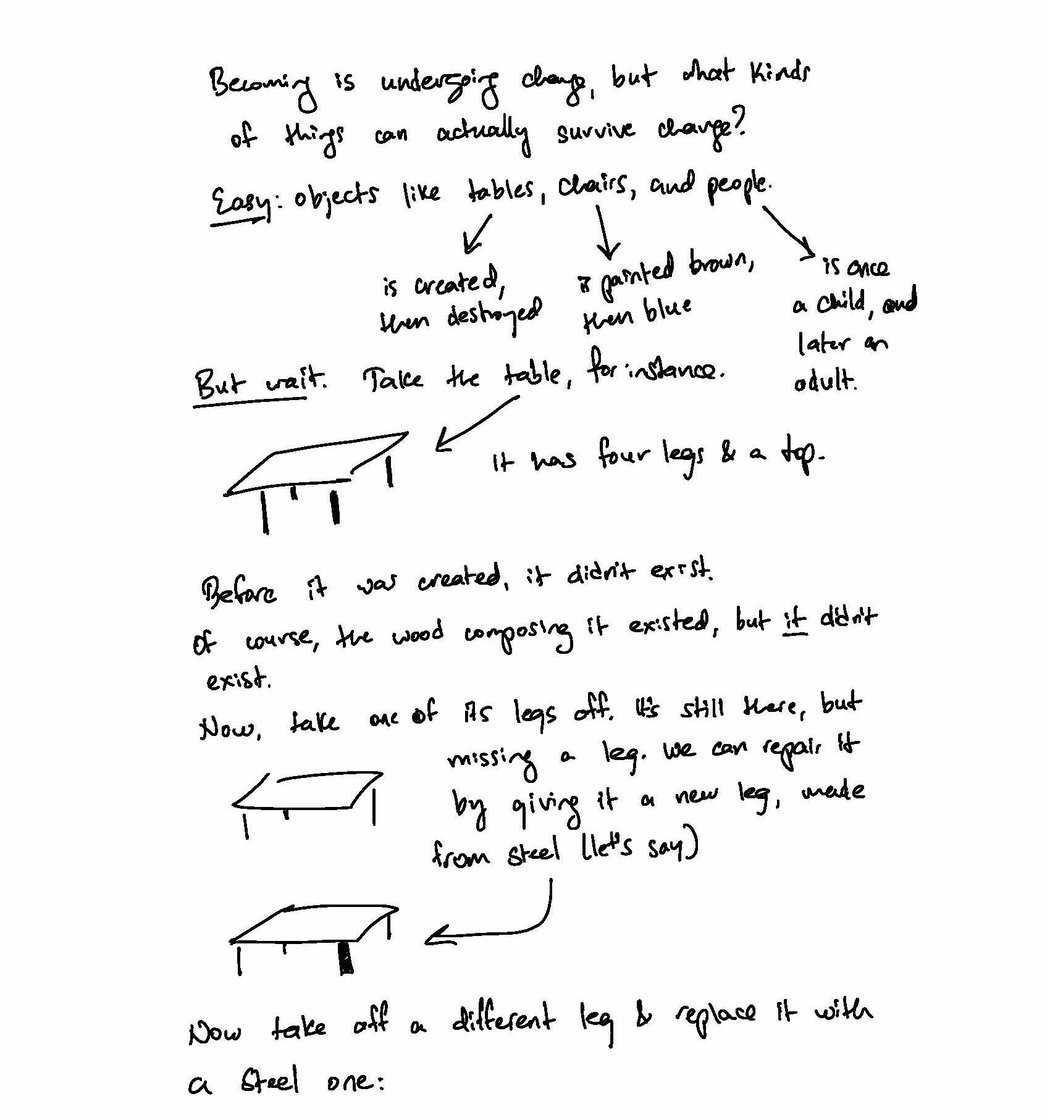 Becoming is undergoing change, but what kinds
of things can actually survive change?
Easy: objects like tables, chairs, and people.
is created,
then destroyed
is painted brown,
then blue
is once
a child, and
later an
adult.
But wait. Take the table, for instance.
It has four legs & a top.
Before it was created, it didn't exist.
Of course, the wood composing it existed, but it didn't
exist.
Now, take one of its legs off. It's still there, but
missing a leg. We can repair it
by giving it a new leg, made
from steel (let's say)
Now take off a different leg & replace it with
a steel one: